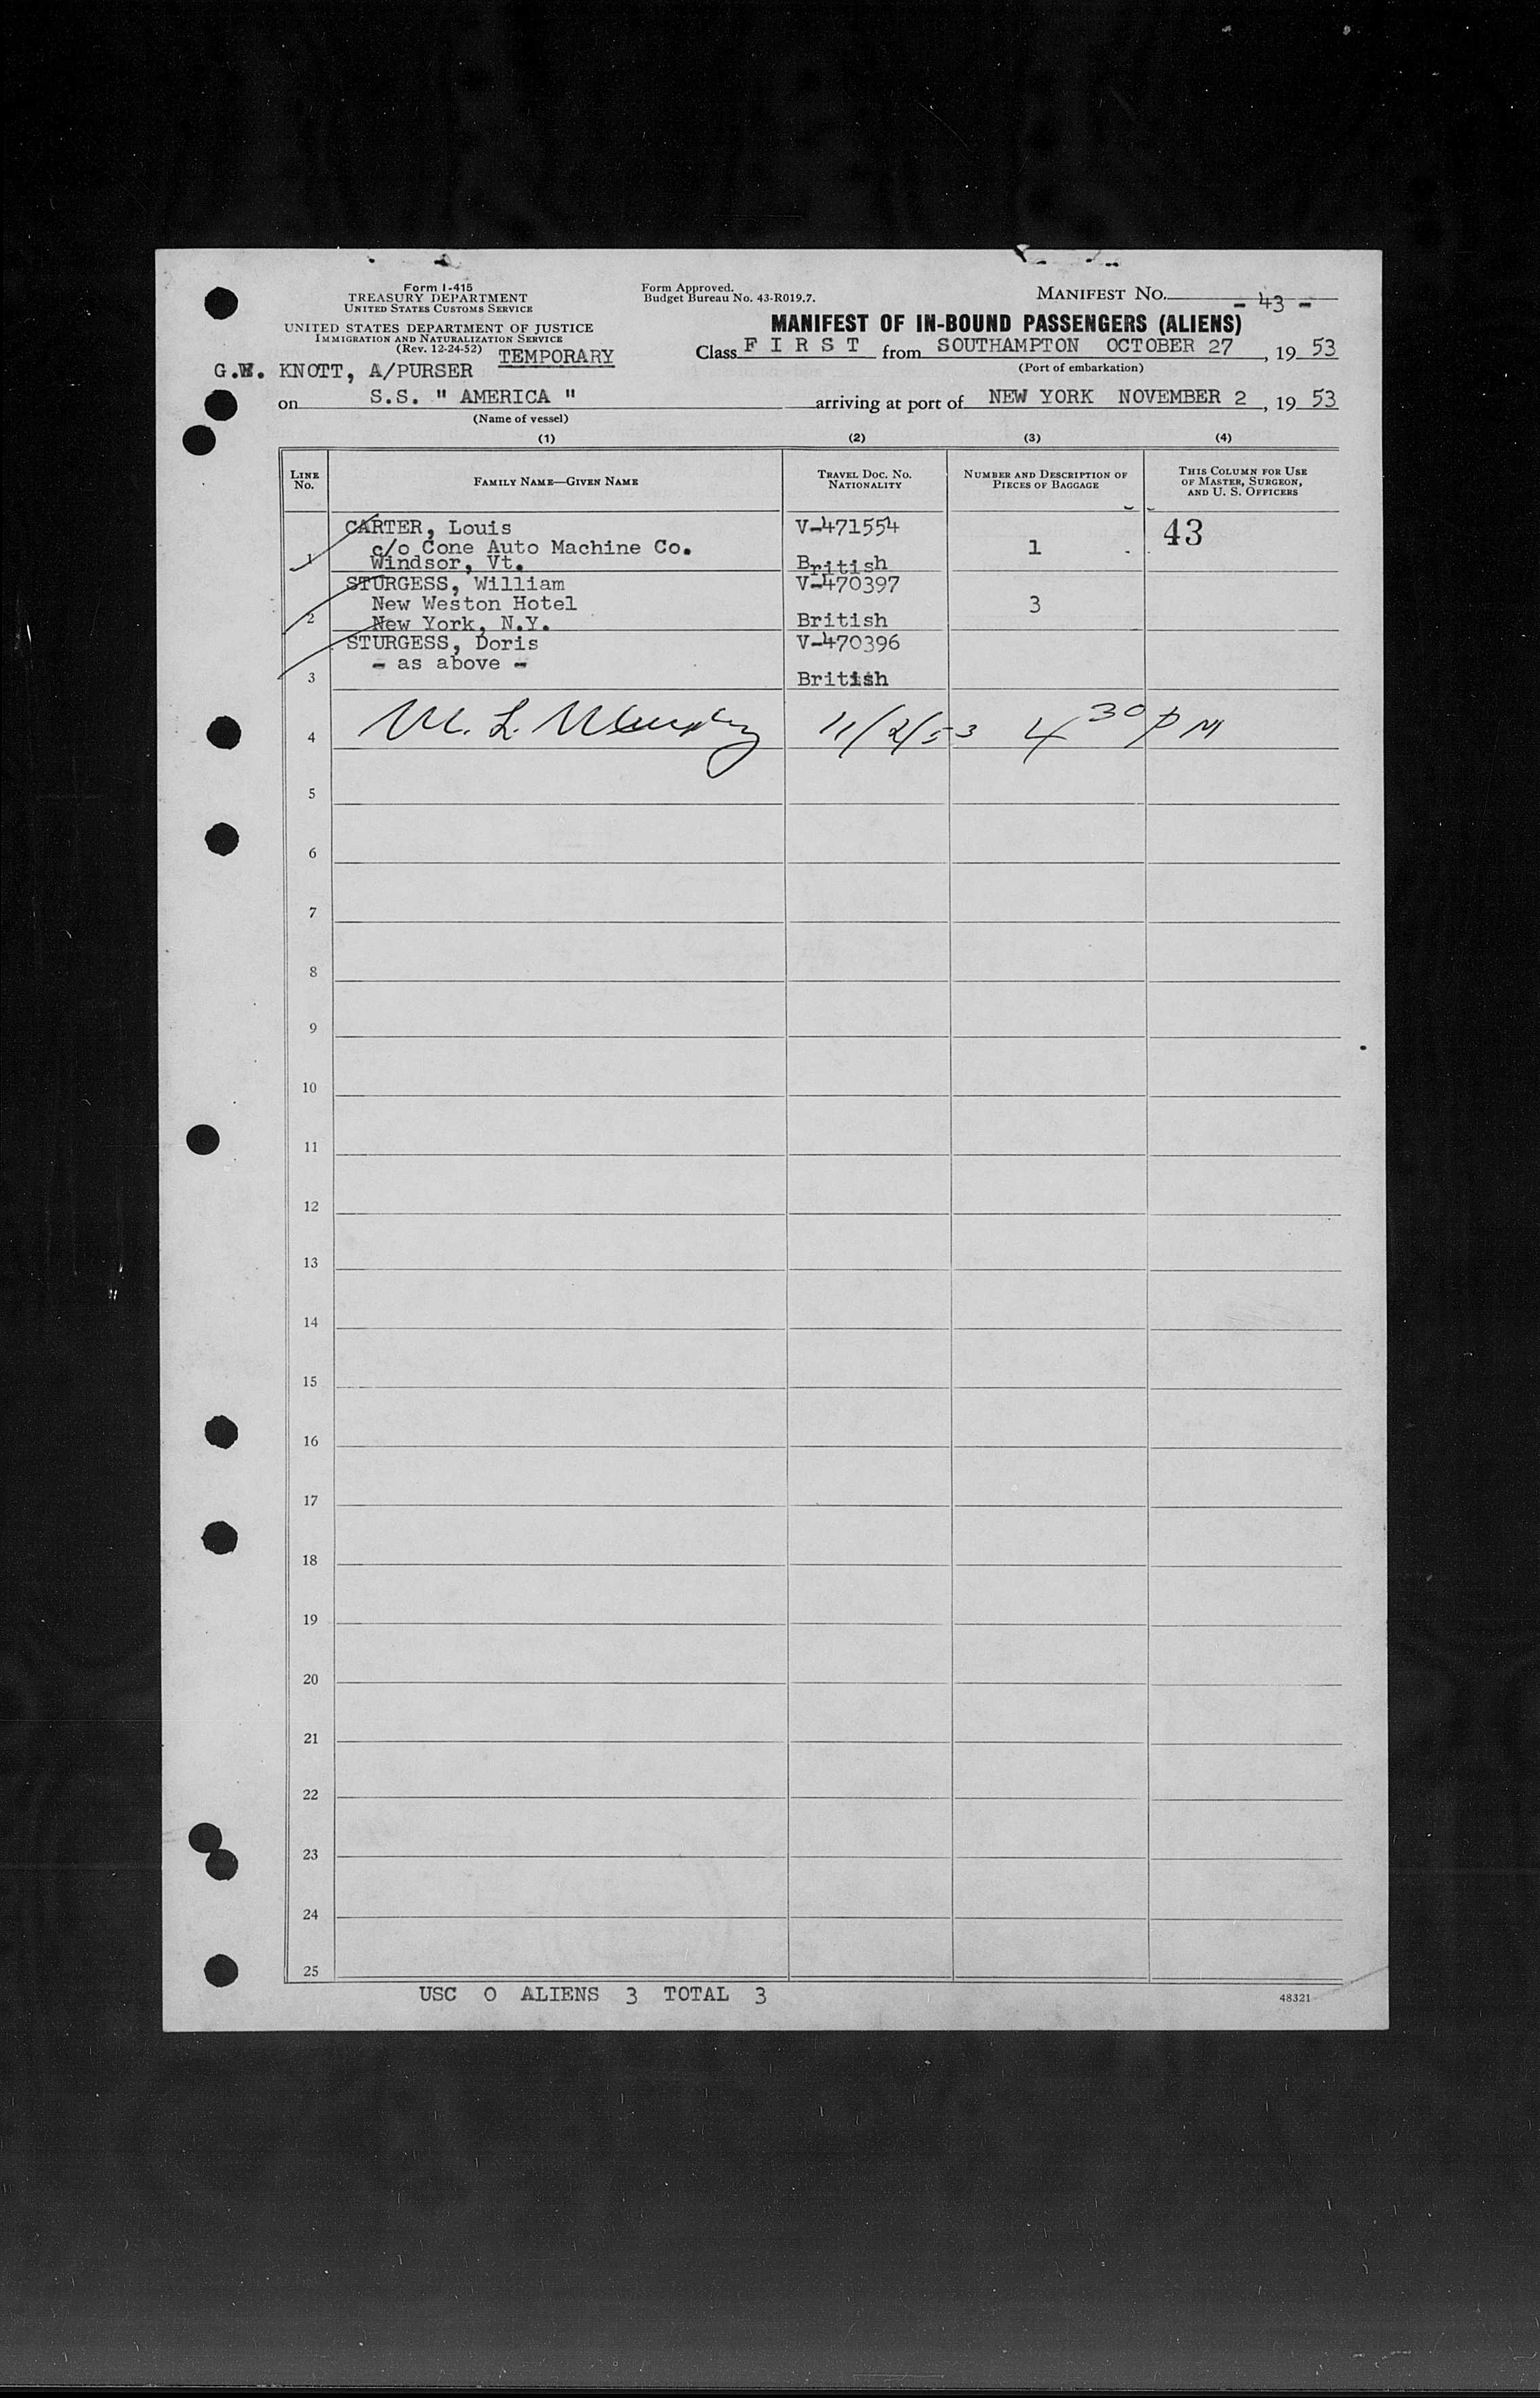 Form I-415
TREASURY DEPARTMENT
UNITED STATES CUSTOMS SERVICE
UNITED STATES DEPARTMENT OF JUSTICE
IMMIGRATION AND NATURALIZATION SERVICE
(Rev. 12-24-52)
TEMPORARY
G.W. KNOTT, A/PURSER
Form Approved.
Budget Bureau No. 43-R019.7.
MANIFEST NO. - 43 -
MANIFEST OF IN-BOUND PASSENGERS (ALIENS)
Class F I R S T from SOUTHAMPTON OCTOBER 27, 19 53
(Port of embarkation)
on S.S. " AMERICA " arriving at port of NEW YORK NOVEMBER 2, 19 53
(Name of vessel)
(1) (2) (3) (4)
LINE No. FAMILY NAME—GIVEN NAME TRAVEL DOC. NO. NATIONALITY NUMBER AND DESCRIPTION OF PIECES OF BAGGAGE THIS COLUMN FOR USE OF MASTER, SURGEON, AND U. S. OFFICERS
CARTER, Louis V-471554 43
c/o Cone Auto Machine Co. 1
1 Windsor, Vt. British
STURGESS, William V-470397
New Weston Hotel 3
2 New York, N.Y. British
STURGESS, Doris V-470396
- as above -
3 British
4 M. L. Murphy 11/2/53 4 30 PM
5
6
7
8
9
10
11
12
13
14
15
16
17
18
19
20
21
22
23
24
25
USC 0 ALIENS 3 TOTAL 3
48321